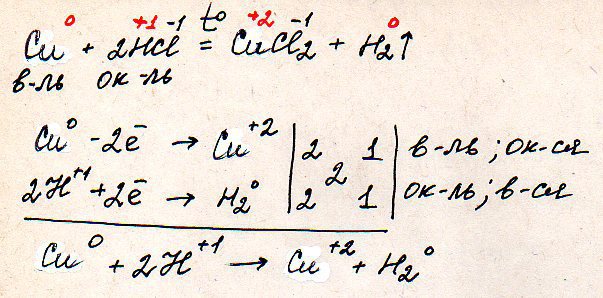 Cu⁰ + 2H⁺¹Cl⁻¹ t° = Cu⁺²Cl₂⁻¹ + H₂⁰↑
в-ль ок-ль
Cu⁰ -2ē → Cu⁺² | 2 | 1 | в-ль; ок-ся
2
2H⁺¹+2ē → H₂⁰ | 2 | 1 | ок-ль; в-ся
Cu⁰ + 2H⁺¹ → Cu⁺² + H₂⁰